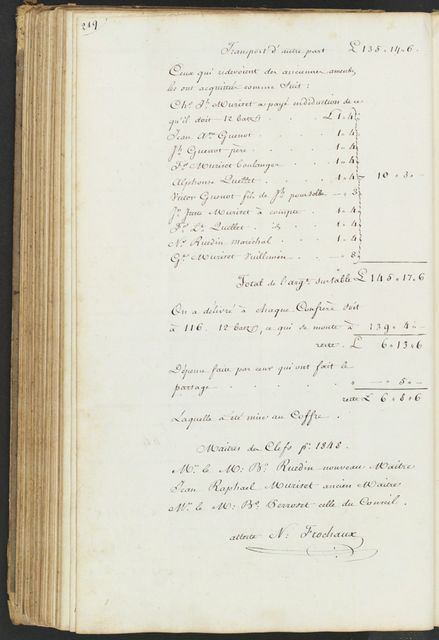 219.
Transport d'autre part £ 135 " 14 " 6.
Ceux qui redevoient des anciennes amendes
les ont acquittés comme suit :
Chs. Jh. Muriset a payé en déduction de ce
qu'il doit 12 batz . . £ 1 " 4
Jean Ate. Guenot . . . 1 " 4
Jh. Guenot père . . . 1 " 4
Fs. Muriset boulanger . . 1 " 4
Alphonse Quellet . . . 1 " 4 10 " 3 " —
Victor Guenot fils de Jh. pour solde — " 3
Js. Juste Muriset à compte . 1 " 4
Fs. Ls. Quellet . ds . 1 " 4
Ns. Ruedin maréchal . . . 1 " 4
Ge. Muriset Vuillemin . . — " 8
Total de l'argt. sur table £ 145 " 17 " 6
On a délivré à chaque Confrère soit
à 116. 12 batz, ce qui se monte à 139 " 4 " —
reste . £ 6 " 13 " 6
Dépense faite par ceux qui ont fait le
partage . . . . " — " 5 " —
reste £ 6 " 8 " 6
Laquelle a été mise au Coffre .
Maîtres des Clefs pr. 1848.
Mr. le M: Bs. Ruedin nouveau Maître
Jean Raphael Muriset ancien Maître
Mr. le M: Bs. Perroset celle du Conseil .
atteste N: Frochaux